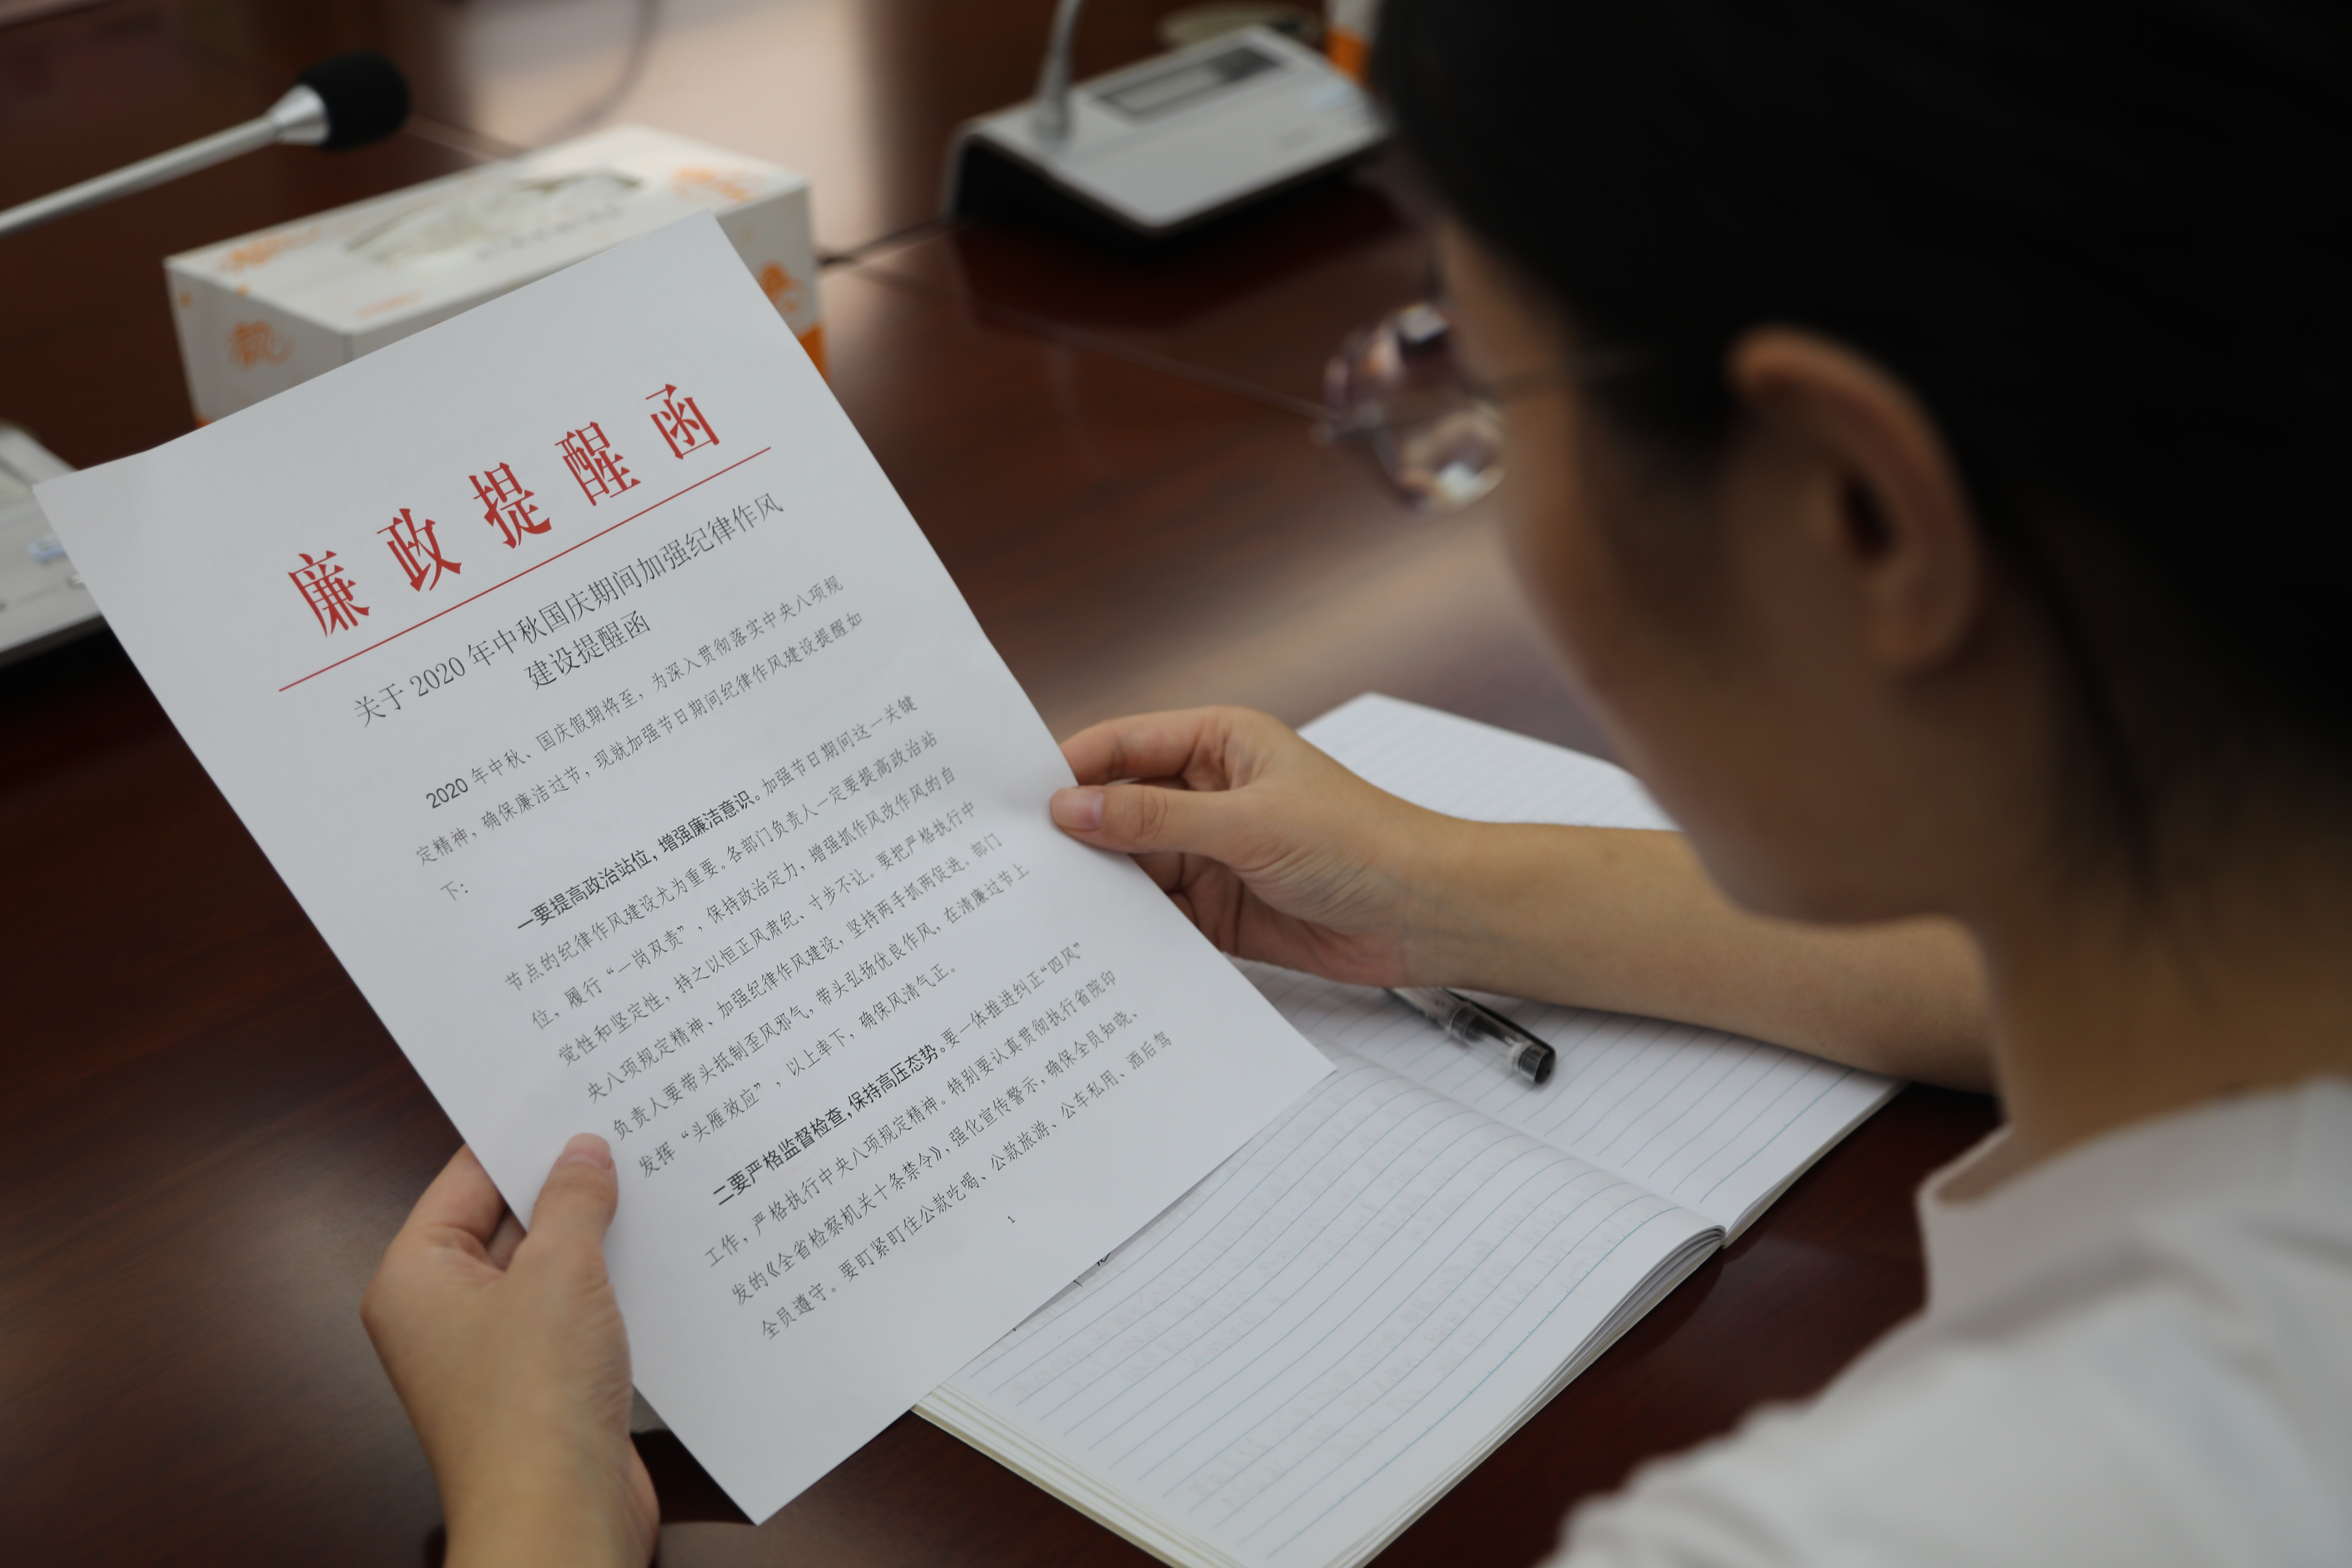 廉政提醒函
关于2020年中秋国庆期间加强纪律作风
建设提醒函
2020年中秋、国庆假期将至，为深入贯彻落实中央八项规
定精神，确保廉洁过节，现就加强节日期间纪律作风建设提醒如
下：
一要提高政治站位，增强廉洁意识。加强节日期间这一关键
节点的纪律作风建设尤为重要。各部门负责人一定要提高政治站
位，履行“一岗双责”，保持政治定力，增强抓作风改作风的自
觉性和坚定性，持之以恒正风肃纪、寸步不让。要把严格执行中
央八项规定精神、加强纪律作风建设，坚持两手抓两促进。部门
负责人要带头抵制歪风邪气，带头弘扬优良作风，在清廉过节上
发挥“头雁效应”，以上率下，确保风清气正。
二要严格监督检查，保持高压态势。要一体推进纠正“四风”
工作，严格执行中央八项规定精神。特别要认真贯彻执行省院印
发的《全省检察机关十条禁令》，强化宣传警示，确保全员知晓、
全员遵守。要盯紧盯住公款吃喝、公款旅游、公车私用、酒后驾
1